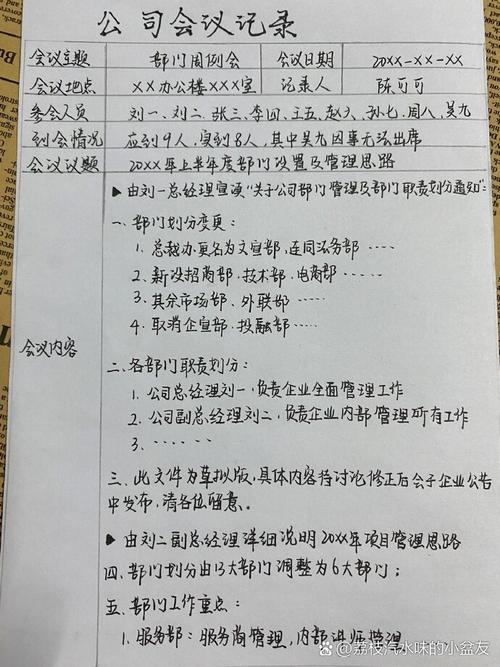 公司会议记录
会议主题 部门周例会 会议日期 20XX-XX-XX
会议地点 XX办公楼XXX室 记录人 陈可可
参会人员 刘一、刘二、张三、李四、王五、赵六、孙七、周八、吴九
到会情况 应到9人，实到8人，其中吴九因事无法出席
会议议题 20XX年上半年度部门设置及管理思路
会议内容
▶由刘一总经理宣读“关于公司部门管理及部门职责划分通知”：
一、部门划分变更：
1、总裁办更名为文宣部，连同法务部……
2、新设招商部、技术部、电商部……
3、其余市场部、外联部……
4、取消企宣部、投融部……
二、各部门职责划分：
1、公司总经理刘一，负责企业全面管理工作
2、公司副总经理刘二，负责企业内部管理所有工作
3、……
三、此文件为草拟版，具体内容待讨论修正后会于企业公告
中发布，请各位留意。
▶由刘二副总经理详细说明20XX年项目管理思路
四、部门划分由13大部门调整为6大部门；
五、部门工作重点：
1、服务部：服务商管理，内部讲师管理
@荔枝汽水味的小盆友